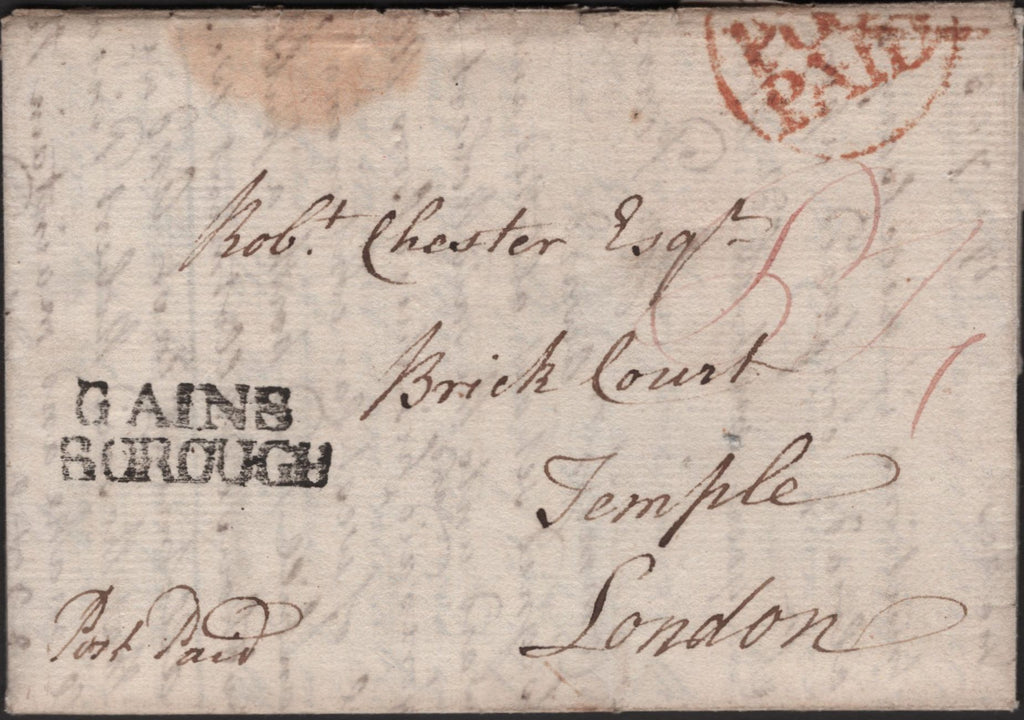 POST
PAID
Robt. Chester Esqr
Brick Court
GAINS
BOROUGH
Temple
London
Post Paid